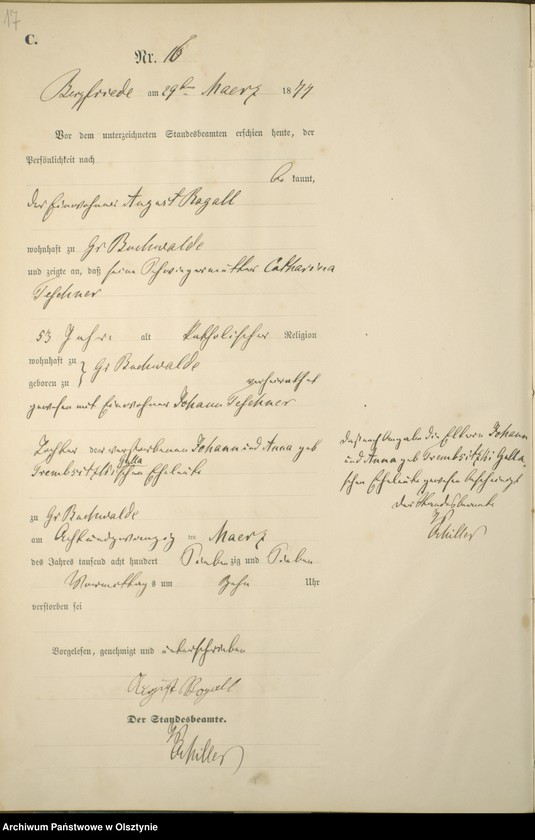 17
C.
Nr. 16
Bergfriede am 29ten Maerz 1877
Vor dem unterzeichneten Standesbeamten erschien heute, der
Persönlichkeit nach
be kannt,
der Einwohner August Rogall
wohnhaft zu Gr Buchwalde
und zeigte an, daß seine Schwiegermutter Catharina
Teschner
53 Jahr alt katholischer Religion
wohnhaft zu
geboren zu } Gr Buchwalde verheirathet
gewesen mit Einwohner Johann Teschner
Tochter der verstorbenen Johann und Anna geb
schen Eheleute
zu Gr Buchwalde
am Achtundzwanzig ten Maerz
des Jahres tausend acht hundert Sieben zig und Sieben
Vormittags um Zehn Uhr
verstorben sei
Vorgelesen, genehmigt und unterschrieben
August Rogall
Der Standesbeamte.
Schiller
Angabe die Eltern Johann
und Anna geb
schen Eheleute gewesen bescheinigt
Der Standesbeamte
Schiller
Archiwum Państwowe w Olsztynie